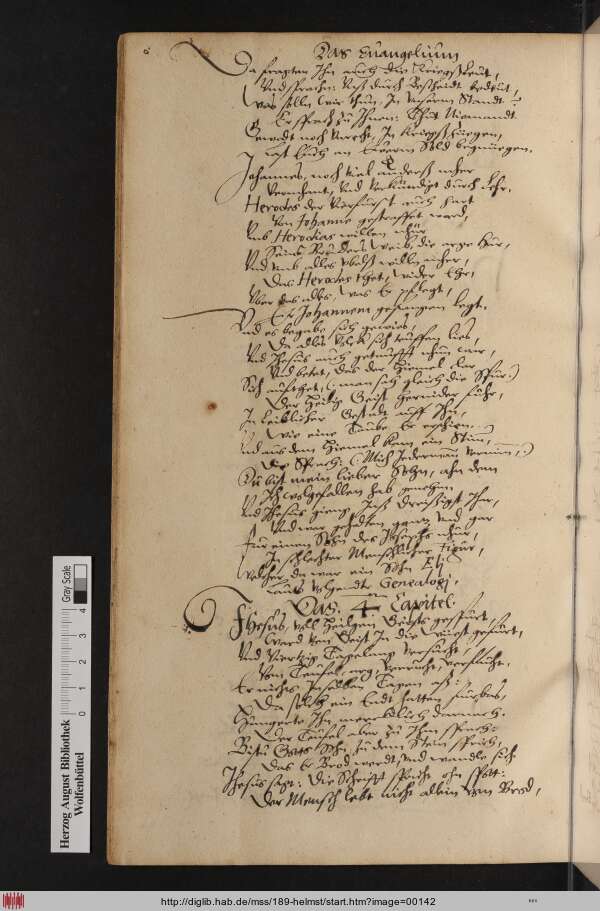 Das Euangelium
Da fragten Ihn auch die Kriegsleut,
Vnd sprachen: Vns durch Bescheidt bedeut,
Was solln wir thun, In vnserm Standt?
Er sprach zu Ihnen: Thut Niemandt
Gewalt noch Vnrecht, In Kriegszügen,
Last Euch an Euerm Sold begnuegen.
Johannes, noch viel anders mher
Vermhant, vnd verkündigt durch Lehr.
Herodes der Vierfürst auch hart
Von Johanne gestraffet ward,
Vmb Herodias willen
Seins Bruders Weib, die arge Hur,
Vnd vmb alles vbels willn mher,
Das Herodes thet, wider Ehr,
Vber das alles, was Er pflegt,
Er Johannem gefangen legt.
Vnd es begabe sich gewies,
Da alles Volck sich teuffen lies,
Vnd Jhesus auch getaufft nhun war,
Vnd betet, das der Himel clar
Sich aufthet, (man sah gleich die Spur:)
Der Heilig Geist hernider fuhr,
In Leiblicher Gestalt auff Ihn,
Wie eine Taube Er erschien.
Vnd aus dem Himel kam ein Stim,
Die Sprach: (Mich Jederman vernim,:)
Du bist mein lieber Sohn, ahn dem
Ich wolgefallen hab genehm
Vnd Jhesus gieng Inß dreissigst Jhar,
Vnd war gehalten gantz vnd gar
Fur einen Sohn des Josephs
In schlechter Menschlicher figur,
Welcher da war ein Sohn Eli
Lauts volgendt Genealogi.
Das. 4 Capitel.
Jhesus, voll Heilgen Geists gespürt,
Ward vom Geist In die Wüest gefürt,
Vnd Viertzig Tagelang versucht,
Vom Teufel, verrucht, verflucht.
Er nichts Inselben Tagen aß:
Da solch ein Endt hatten
Hungerte Ihn mercklich darnach.
Der Teufel aber zu Ihm sprach:
Bistu Gotts Sohn, zu dem Stein sprich,
Das Er Brod werdt, vnd wandle sich
Jhesus sagt: Die Schrifft spricht ohn spott:
Der Mensch lebt nicht allein vom Brod,
Gray Scale
0 1 2 3 4
Herzog August Bibliothek
Wolfenbüttel
http://diglib.hab.de/mss/189-helmst/start.htm?image=00142